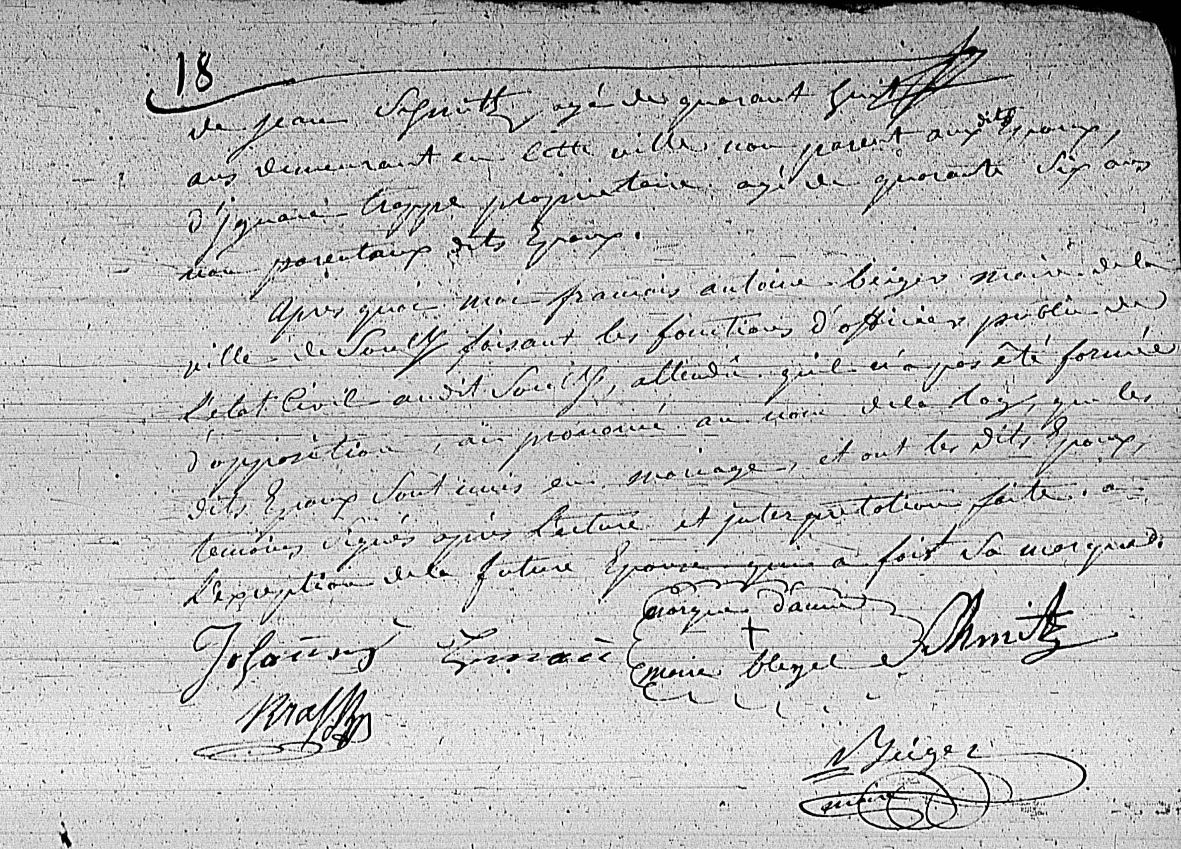 18
de jean Schmitt, agé de quarant huit
ans demeurant en cette ville non parent aux dits Epoux,
d'jgnace trappe proprietaire agé de quarante Six ans
non parentaux dits Epoux.
apres quoi moi francois antoine beiger maire de la
ville de Soultz faisant les fonctions d'officier public de
L'etat Civil audit Soultz, attendu qu'il n'a pas été formée
d'opposition, ai prononcé au nom de la loy, que les
dits Epoux Sont unis en mariage, et ont les dits Epoux,
temoins Signés après Lecture et jnterpretation faite. a
L'exception de la future Epouse qui a fait Sa marque.
marque d'anne
+
marie
Schmitt
maire